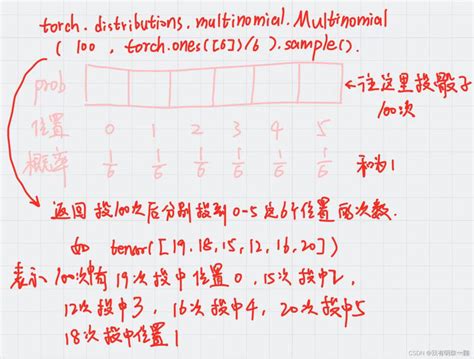 torch. distributions. multinomial. Multinomial
( 100 , torch.ones([6])/6 ).sample().
prob
←往这里投骰子
100次
位置 0 1 2 3 4 5
概率 1/6 1/6 1/6 1/6 1/6 1/6 和为1
返回 投100次后分别投到0-5这6个位置的次数.
如 tensor([19.18,15,12,16,20])
表示 100次中有19次投中位置0,15次投中2,
12次投中3, 16次投中4, 20次投中5
18次投中位置1